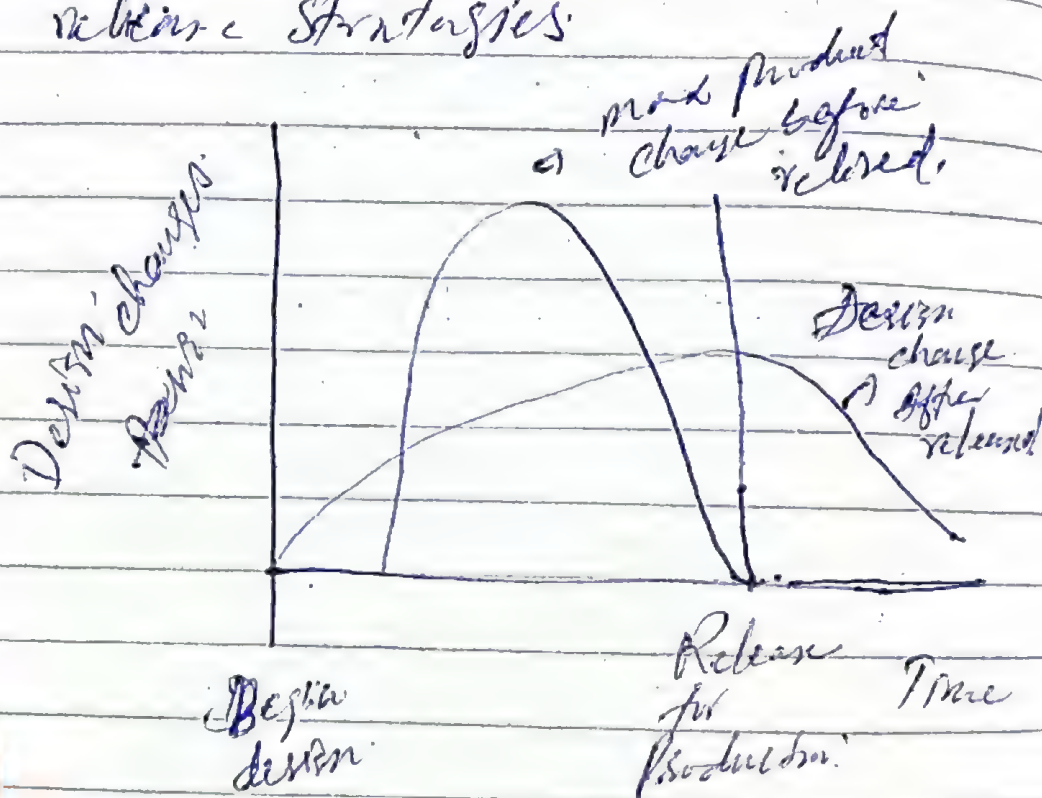 release Strategies.
Product
change before
released.
Design changes
Design
change
after
released
Begin
design
Release
for
Production.
Time